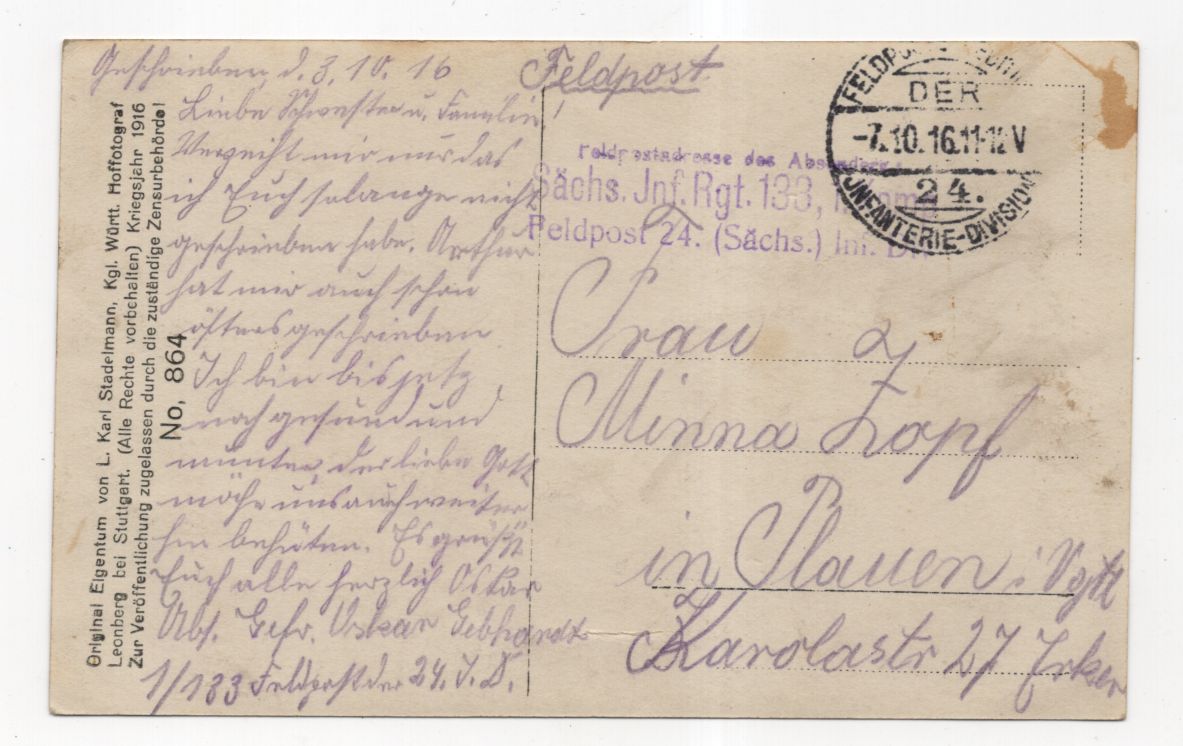 Geschrieben d. 3.10.16
Liebe Schwester u. Familie!
Verzeiht mir nur das
ich Euch solange nicht
geschrieben habe. Arthur
hat mir auch schon
öfters geschrieben
Ich bin bis jetz
noch gesund und
munter der liebe Gott
möge uns auch weiter
hin behüten. Es grüßt
Euch alle herzlich Oskar
Abs. Gefr. Oskar Gebhardt
1/133 Feldpost der 24. I.D.
Feldpost
Feldpostadresse des Absenders:
Sächs. Jnf. Rgt. 133,
Feldpost 24. (Sächs.) Inf. Div.
DER
-7.10.16.11-12V
24.
JNFANTERIE-DIVISION
Frau
Minna Zopf
in Plauen i Vgtl
Karolastr 27 Erker
Original Eigentum von L. Karl Stadelmann, Kgl. Württ. Hoffotograf
Leonberg bei Stuttgart. (Alle Rechte vorbehalten) Kriegsjahr 1916
Zur Veröffentlichung zugelassen durch die zuständige Zensurbehörde!
No, 864